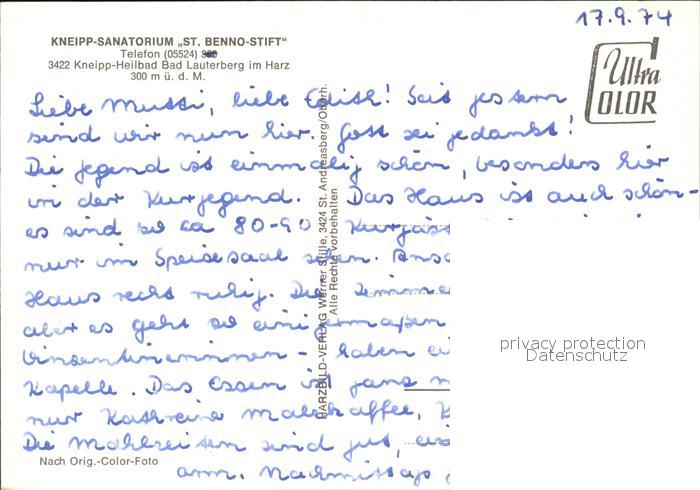 17.9.74
KNEIPP-SANATORIUM „ST. BENNO-STIFT"
Telefon (05524)
3422 Kneipp-Heilbad Bad Lauterberg im Harz
300 m ü. d. M.
Ultra
COLOR
Liebe Mutti, liebe Edith! Seit gestern
sind wir nun hier. Gott sei gedankt!
Die Gegend ist einmalig schön, besonders hier
in der Kurgegend. Das Haus ist auch schön-
es sind so ca 80-90 Kurgäs
nur im Speisesaal sehen. Ans
Haus recht ruhig. Die Zimme
aber es geht so einigermaßen
Vinzentinerinnen - haben ei
Kapelle. Das Essen ist ganz
nur Kathreine Malzkaffee, K
Die Mahlzeiten sind gut,
arm. Nachmittags
HARZBILD-VERLAG Werner Stille, 3424 St. Andreasberg/Oberh.
Alle Rechte vorbehalten
privacy protection
Datenschutz
Nach Orig.-Color-Foto